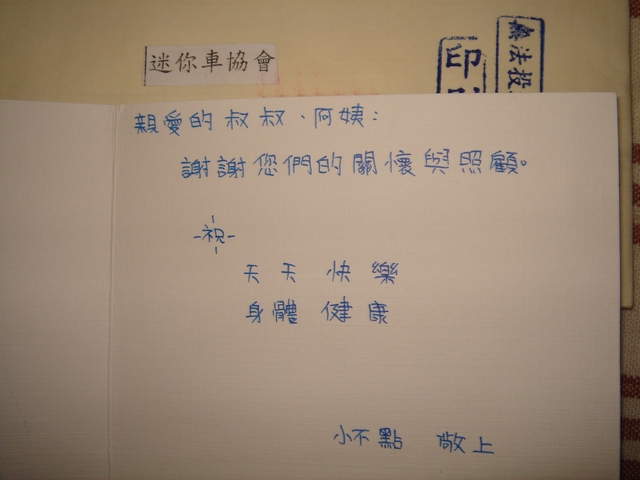 迷你車協會
無法投
印
親愛的叔叔、阿姨：
謝謝您們的關懷與照顧。
祝
天天快樂
身體健康
小不點 敬上